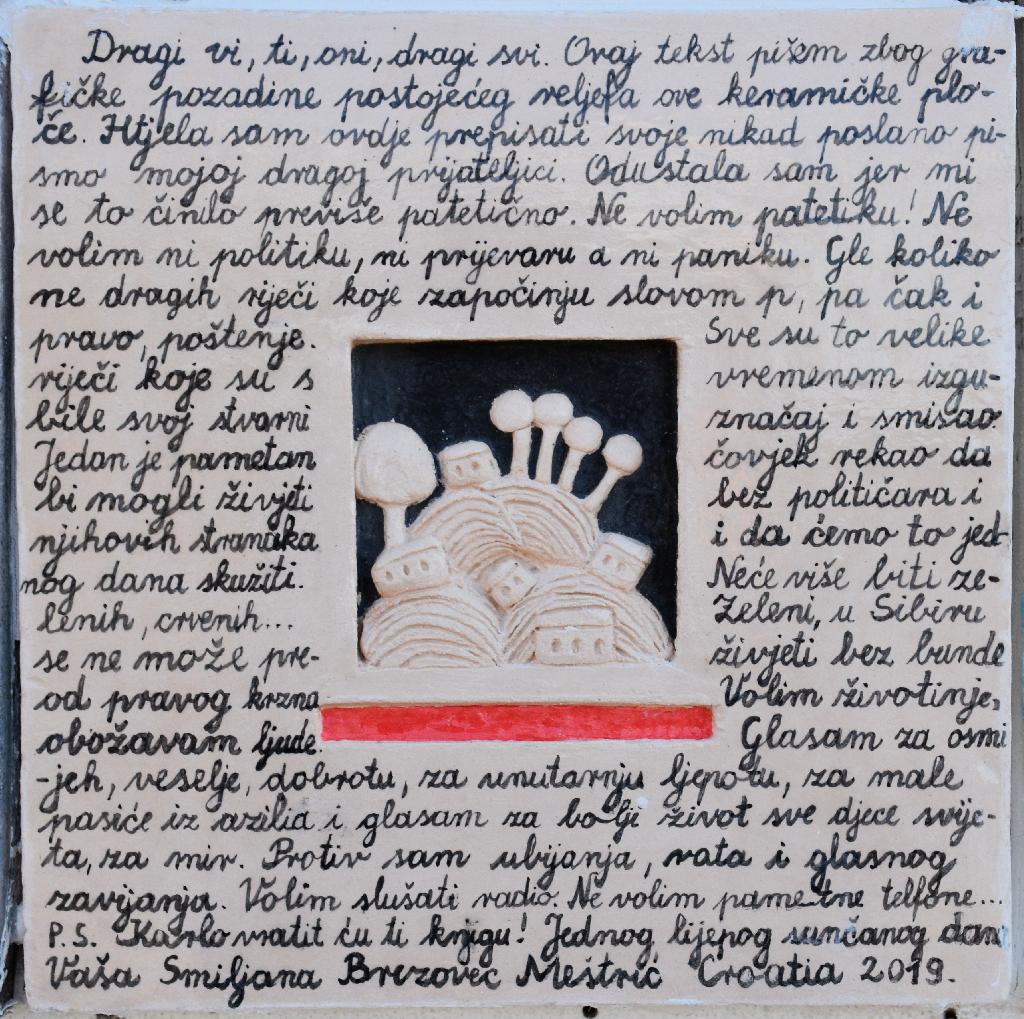 Dragi vi, ti, oni, dragi svi. Ovaj tekst pišem zbog gra-
fičke pozadine postojećeg reljefa ove keramičke plo-
če. Htjela sam ovdje prepisati svoje nikad poslano pi-
smo mojoj dragoj prijateljici. Odustala sam jer mi
se to činilo previše patetično. Ne volim patetiku! Ne
volim ni politiku, ni prijevaru a ni paniku. Gle koliko
ne dragih riječi koje započinju slovom p, pa čak i
pravo, poštenje. Sve su to velike
riječi koje su s vremenom izgu-
bile svoj stvarni značaj i smisao.
Jedan je pametan čovjek rekao da
bi mogli živjeti bez političara i
njihovih stranaka i da ćemo to jed-
nog dana skužiti. Neće više biti ze-
lenih, crvenih... Zeleni, u Sibiru
se ne može pre- živjeti bez bunde
od pravog krzna Volim životinje,
obožavam ljude. Glasam za osmi
-jeh, veselje, dobrotu, za unutarnju ljepotu, za male
pasiće iz azilia i glasam za bolji život sve djece svije-
ta, za mir. Protiv sam ubijanja, rata i glasnog
zavijanja. Volim slušati radio. Ne volim pametne telfone...
P.S. Karlo vratit ću ti knjigu! Jednog lijepog sunčanog dana
Vaša Smiljana Brezovec Meštrić Croatia 2019.